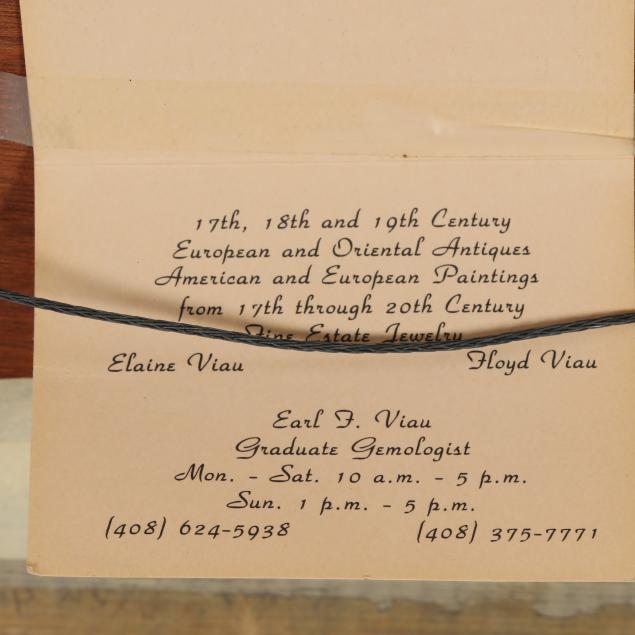 17th, 18th and 19th Century
European and Oriental Antiques
American and European Paintings
from 17th through 20th Century
Fine Estate Jewelry
Elaine Viau Floyd Viau
Earl F. Viau
Graduate Gemologist
Mon. - Sat. 10 a.m. - 5 p.m.
Sun. 1 p.m. - 5 p.m.
(408) 624-5938 (408) 375-7771